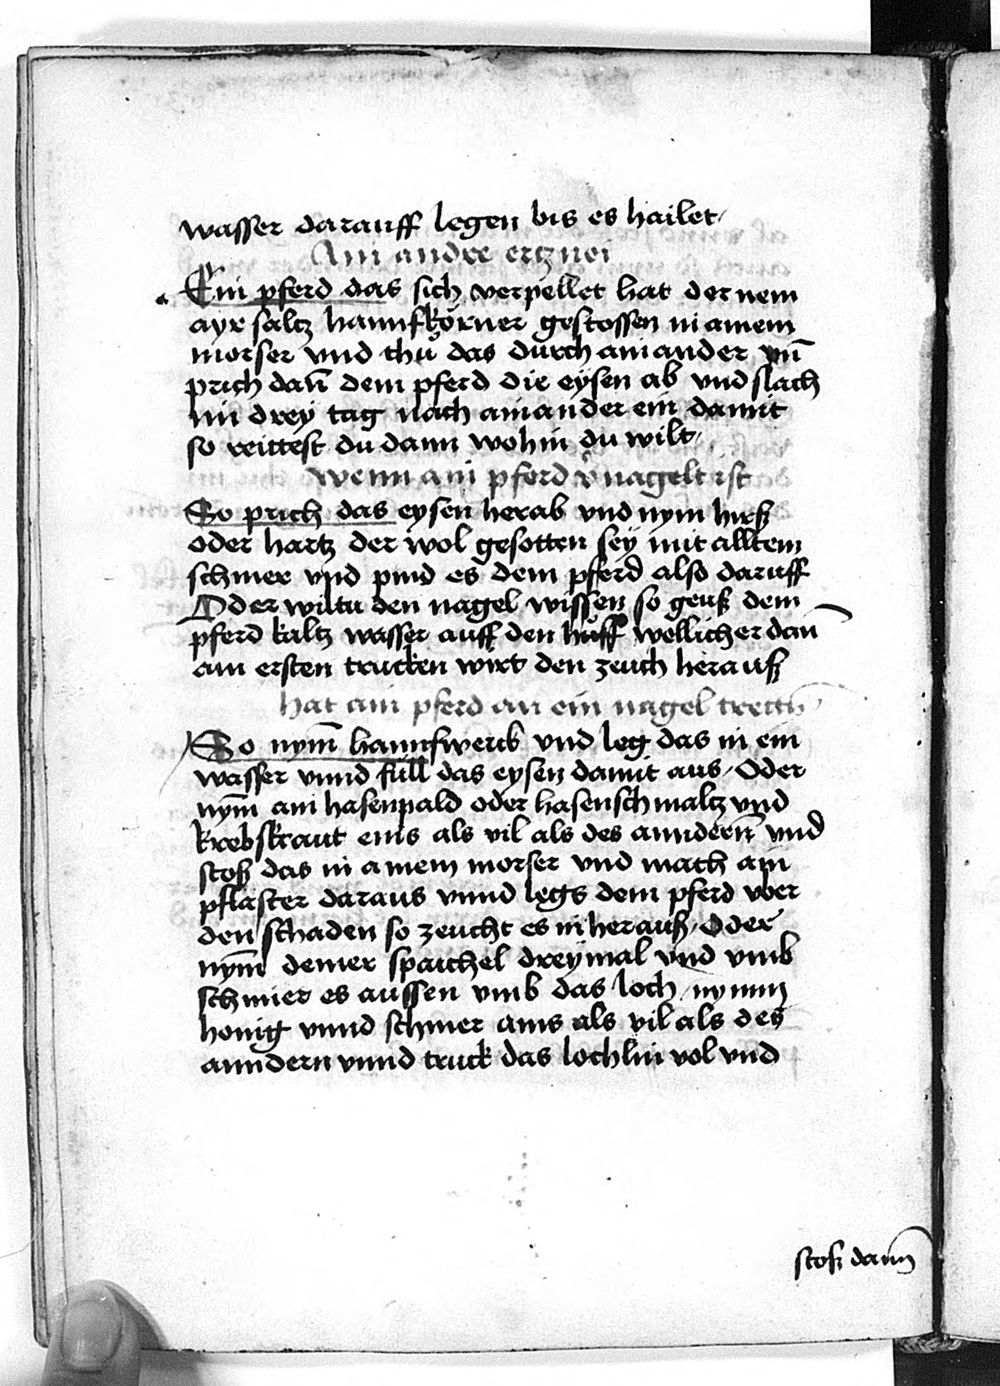 wasser darauff legen bis es hailet /
Ain andre ertznei
Ein pferd das sich verpellet hat der nem
ayr saltz hannfkörner gestossen in ainem
morser vnd thu̇ das durch ainander vn̄
prich dan̄ dem pferd die eysen ab vnd slach
im drey tag nach ainander ein damit
so reittest du dann wohin du wilt /
wenn ain pferd v̊nagelt ist
So prich das eysen herab vnd nym hirß
oder hartz der wol gesotten sey mit alltem
schmer vnd pind es dem pferd also daruff
Oder wiltu den nagel wissen so geuß dem
pferd kaltz wasser auff den huff wellicher dan̄
am ersten trucken wirt den zeuch herauß
hat ain pferd an ein nagel tretten
So nym̄ hannfwerck vnd leg das in ein
wasser vnnd füll das eysen damit aus / Oder
nym̄ ain hasenpald oder hasenschmaltz vnd
krebskraut eins als vil als des anndern̄ vnd
stoß das in ainem morser vnd mach ain
pflaster daraus vnnd legs dem pferd vber
den schaden so zeucht es in herauß / Oder
nym̄ deiner spaichel dreymal vnd vmb
schmier es aussen vmb das loch / nymm
honig vnnd schmer ains als vil als des
anndern vnnd truck das lochlin vol vnd
stoß dann